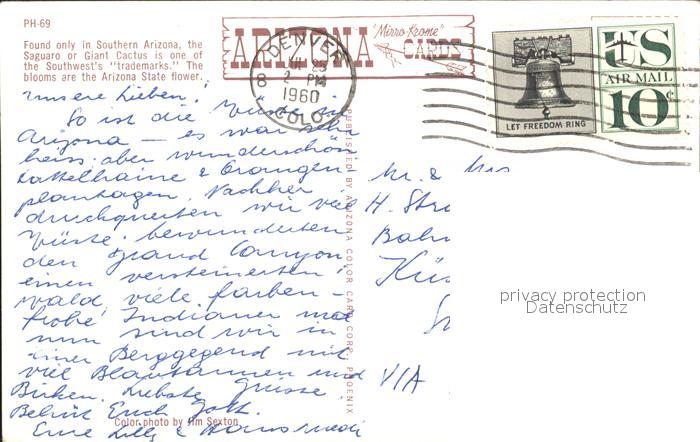 PH-69
Found only in Southern Arizona, the
Saguaro or Giant Cactus is one of
the Southwest's "trademarks." The
blooms are the Arizona State flower.
ARIZONA "Mirro-Krome" CARDS
DENVER
8
2 PM
1960
COLO.
LET FREEDOM RING
US
AIR MAIL
10¢
Unsere Lieben!
So ist die Wüste in
Arizona – es war sehr
heiss, aber wunderschön
Dattelhaine & Orangen
plantagen. Nachher
durchquerten wir viel
Wüste, bewunderten
den Grand Canyon
einen versteinerten
Wald, viele farben-
frohe Indianer und
nun sind wir in
einer Berggegend mit
viel Blautannen und
Birken. Liebste Grüsse.
Behüt Euch Gott.
Eure Lilly &
Color photo by Jim Sexton
PUBLISHED BY ARIZONA COLOR CARD CORP. PHOENIX
Mr. & Mrs
H.
VIA
privacy protection
Datenschutz